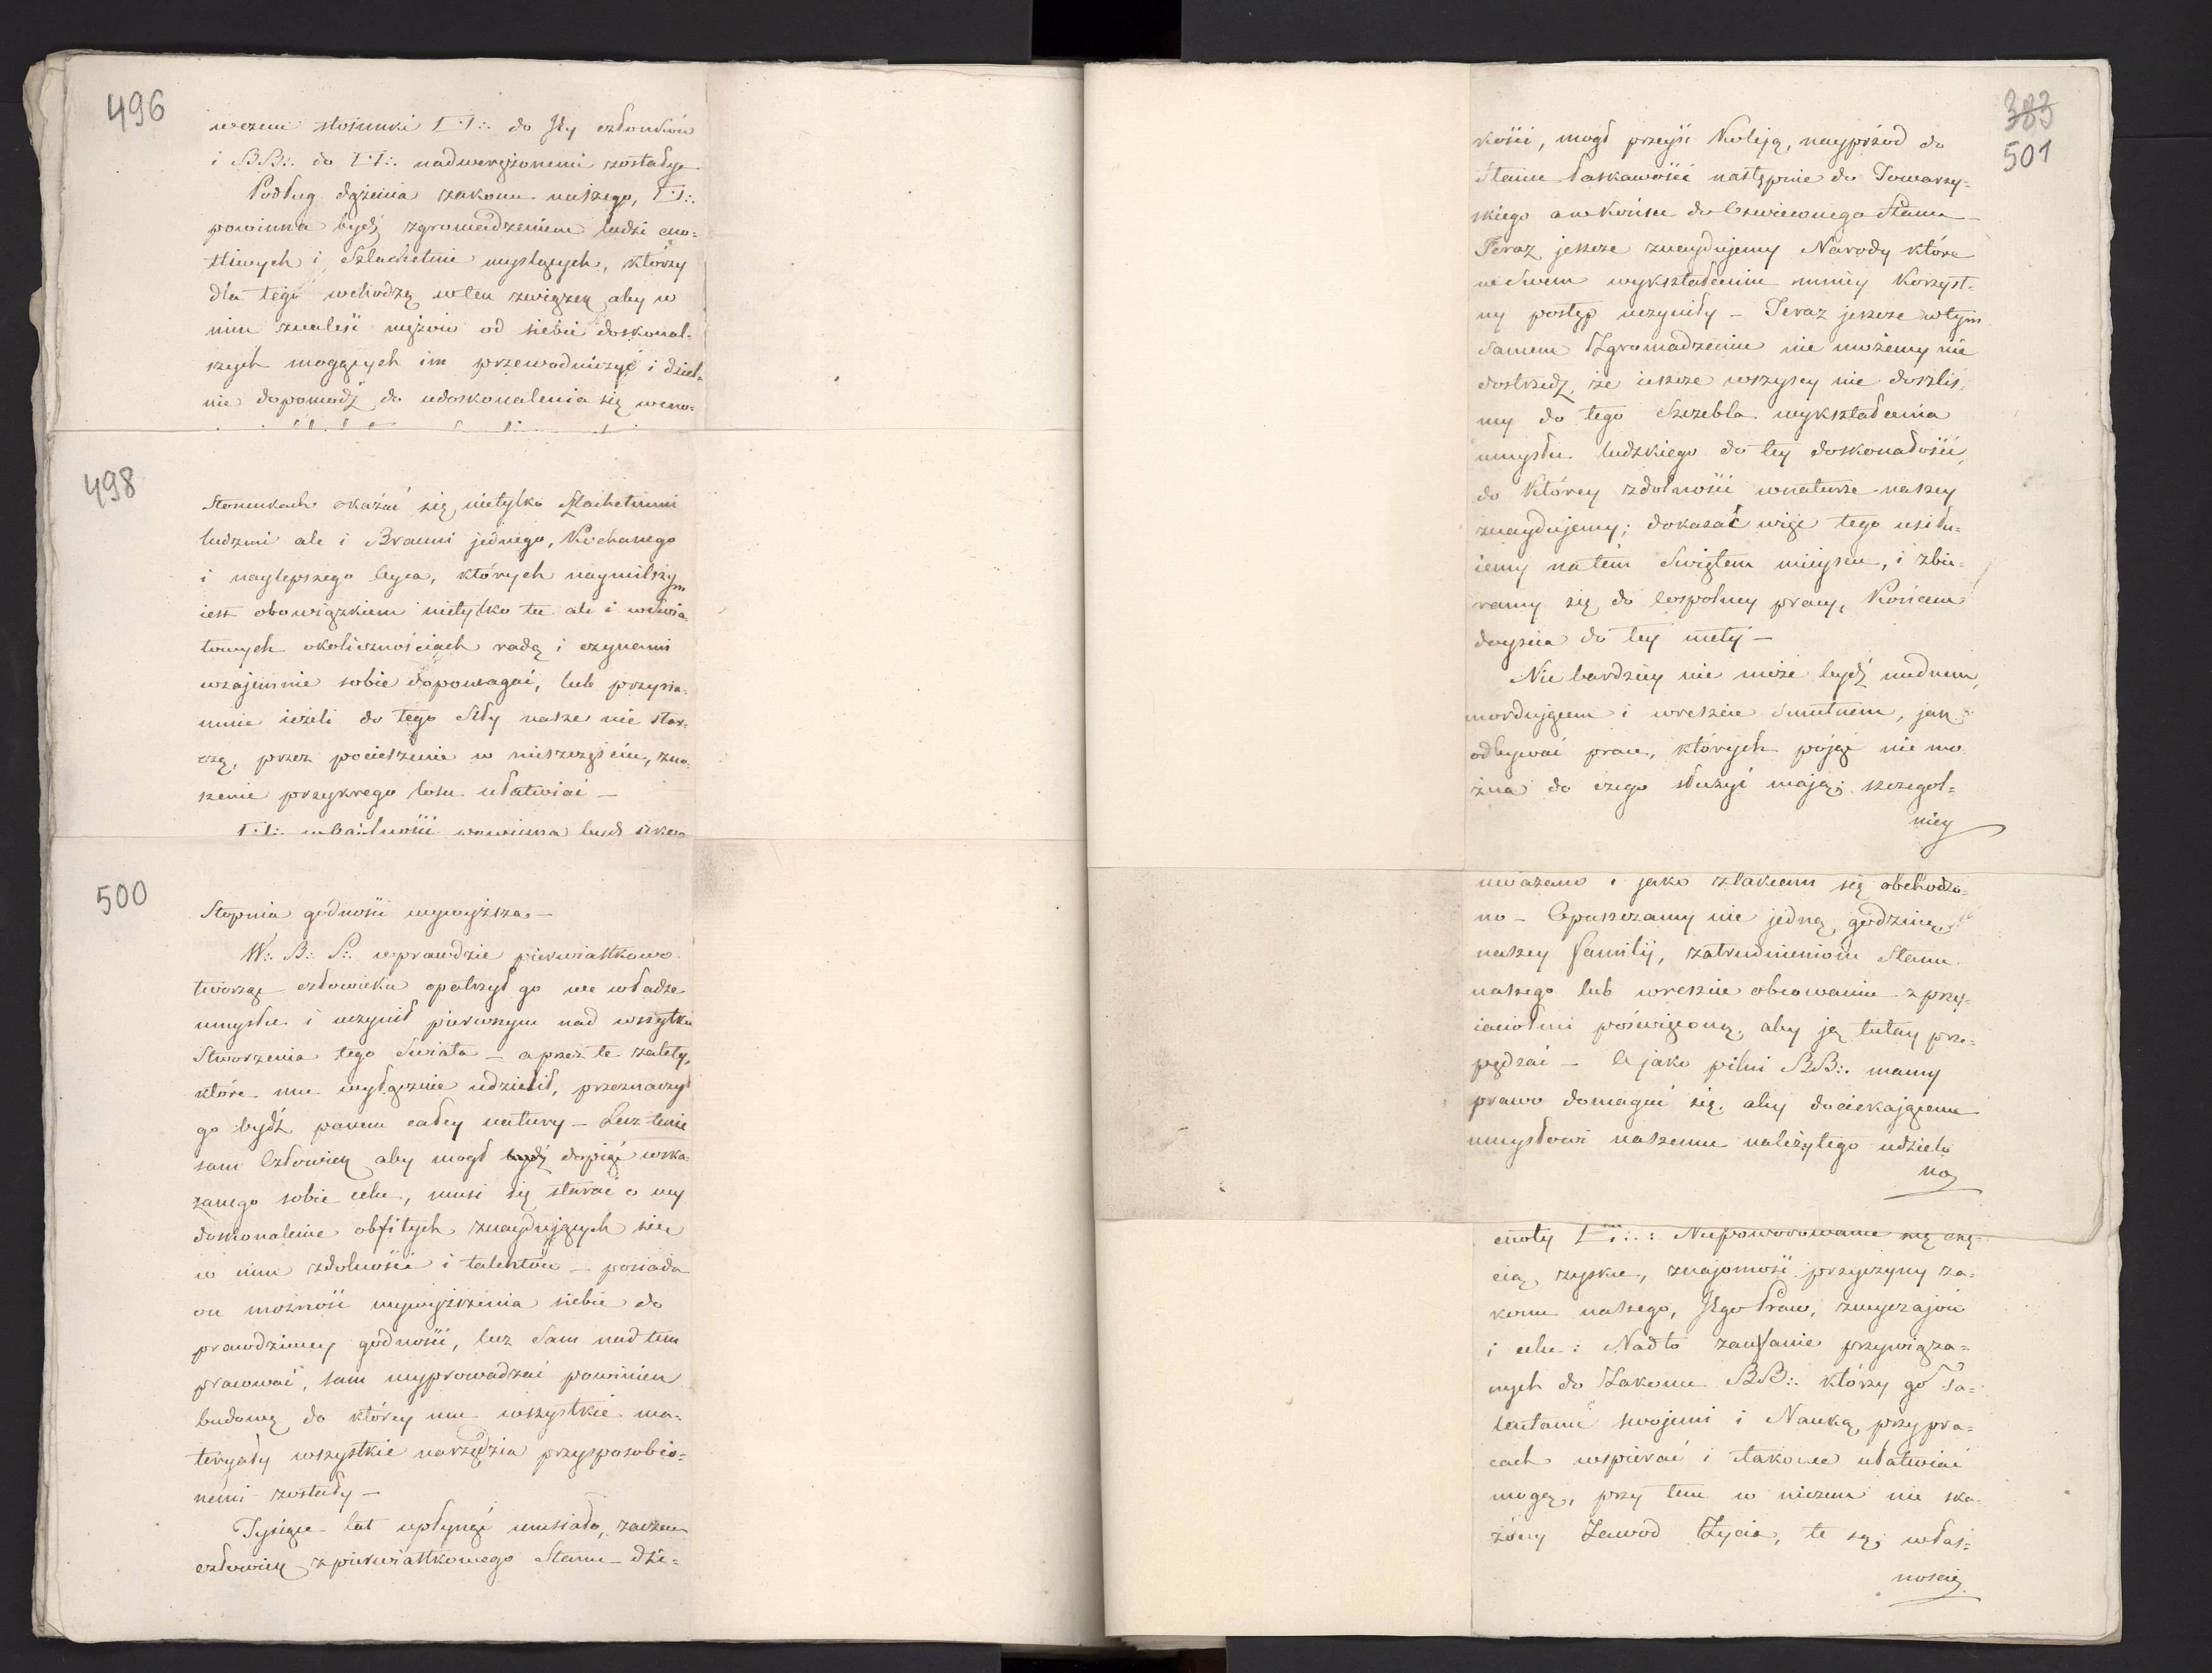 496
wczem stosunki □.□∴ do Jey członków
i BB∴ do □.□∴ nadwerężonemi zostały
Podług dążenia zakonu naszego, □.□∴
powinna bydź zgromadzeniem ludzi cno=
tliwych i Szlachetnie myslących, którzy
dla tego wchodzą wten związek aby w
nim znaleść mężów od siebie doskonal=
szych mogących im przewodniczyć i dziel=
nie dopomodz do udoskonalenia się wcno=
498
Stosunkach okazać się nietylko Szlachetnemi
ludzmi ale i Bracmi jednego, Kochanego
i naylepszego Oyca, których naymilszym
iest obowiązkiem nietylko tu ale i wświa=
towych okolicznościach radą i czynami
wzajemnie sobie dopomagać, lub przyna=
mnie ieżeli do tego Siły nasze nie star=
czą, przez pocieszenie w nieszczęściu, zno=
szenie przykrego losu ułatwiać —
500
Stopnia godności wywyższa —
W∴ B∴ S∴ wprawdzie pierwiastkowo
tworząc człowieka opatrzył go we władze
umysłu i uczynił pierwszym nad wszytkie
Stworzenia tego Swiata — a przez te zalety,
które mu wyłącznie udzielił, przeznaczył
go bydź panem całey natury — Lecz tenże
sam Człowiek aby mogł bydź dopiąć wska=
zanego sobie celu, musi się starać o wy
doskonalenie obfitych znaydujących się
w nim zdolności i talentów — posiada
on możność wywyższenia siebie do
prawdziwey godności, lecz Sam nad tem
pracować, sam wyprowadzać powinien
budowę do którey mu wszystkie ma=
teryały wszystkie narzędzia przysposobio=
nemi zostały —
Tysiące lat upłynąć musiało, zaczem
człowiek z pierwiastkowego Stanu dzi=
383
501
kości, mogł przeyść Koleją, nayprzód do
Stanu łaskawości następnie do Towarzy=
skiego a w Końcu do Oswieconego Stanu —
Teraz jeszcze znaydujemy Narody które
we Swem wykształceniu mniey Korzyst=
ny postęp uczyniły — Teraz jeszcze w tym
Samem Zgromadzeniu nie możemy nie
dostrzedz, że ieszcze wszyscy nie doszliś=
my do tego Szczebla wykształcenia
umysłu ludzkiego do tey doskonałości,
do którey zdolności wnaturze naszey
znaydujemy; dokazać więc tego usiłu=
iemy na tém Swiętem mieyscu, i zbie=
ramy się do Wspolney pracy, Końcem
doyscia do tey mety —
Nic bardziey nie może bydź nudnem,
mordującem i wreszcie Smutnem, jak
odbywać prace, których pojąć nie mo
żna do czego służyć mają; szczegol=
niey
uważano i jako z takiemi się obchodzo=
no — Opuszczamy nie jedną godzinę
naszey familij, zatrudnieniom Stanu
naszego lub wreszcie obcowaniu z przy=
iaciołmi poświęconą, aby ją tutay prze=
pędzać — A jako pilni BB∴ mamy
prawo domagać się, aby dociekającemu
umysłowi naszemu należytego udzielo
no
cnoty
cią zysku, znajomość przyczyny za=
konu naszego, Jego Praw, zwyczajów
i celu: Nadto zaufanie przywiąza=
nych do Zakonu BB∴ którzy go Ta=
lentami swojemi i Nauką, przy pra=
cach wspierać i takowe ułatwiać
mogą, przy tem w niczem nie ska=
żony Zawod Życia, te są, włas=
noscią